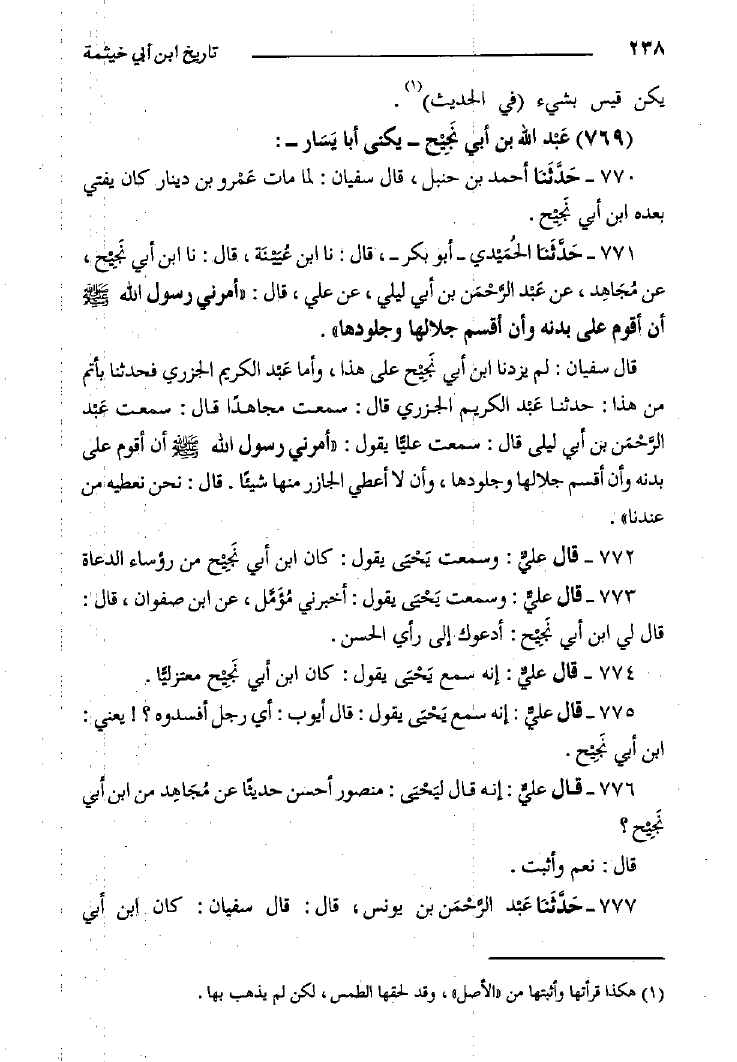 ٢٣٨ تاريخ ابن أبي خيثمة
يكن قيس بشيء (في الحديث)(١) .
(٧٦٩) عَبْد الله بن أبي نَجِيْح ـ يكنى أبا يَسَار ـ :
٧٧٠ ـ حَدَّثَنَا أحمد بن حنبل ، قال سفيان : لما مات عَمْرو بن دينار كان يفتي
بعده ابن أبي نَجِيْح .
٧٧١ ـ حَدَّثَنَا الحُمَيْدي ـ أبو بكر ـ ، قال : نا ابن عُيَيْنَة ، قال : نا ابن أبي نَجِيْح ،
عن مُجَاهِد ، عن عَبْد الرَّحْمَن بن أبي ليلي ، عن علي ، قال : «أمرني رسول الله ﷺ
أن أقوم على بدنه وأن أقسم جلالها وجلودها» .
قال سفيان : لم يزدنا ابن أبي نَجِيْح على هذا ، وأما عَبْد الكريم الجزري فحدثنا بأتم
من هذا : حدثنا عَبْد الكريم الجزري قال : سمعت مجاهدًا قال : سمعت عَبْد
الرَّحْمَن بن أبي ليلى قال : سمعت عليًّا يقول : «أمرني رسول الله ﷺ أن أقوم على
بدنه وأن أقسم جلالها وجلودها ، وأن لا أعطي الجازر منها شيئًا . قال : نحن نعطيه من
عندنا» .
٧٧٢ ـ قال عليٌّ : وسمعت يَحْيَى يقول : كان ابن أبي نَجِيْح من رؤساء الدعاة
٧٧٣ ـ قال عليٌّ : وسمعت يَحْيَى يقول : أخبرني مُؤَمَّل ، عن ابن صفوان ، قال :
قال لي ابن أبي نَجِيْح : أدعوك إلى رأي الحسن .
٧٧٤ ـ قال عليٌّ : إنه سمع يَحْيَى يقول : كان ابن أبي نَجِيْح معتزليًّا .
٧٧٥ ـ قال عليٌّ : إنه سمع يَحْيَى يقول : قال أيوب : أي رجل أفسدوه ؟ ! يعني :
ابن أبي نَجِيْح .
٧٧٦ ـ قال عليٌّ : إنه قال ليَحْيَى : منصور أحسن حديثًا عن مُجَاهِد من ابن أبي
نَجِيْح ؟
قال : نعم وأثبت .
٧٧٧ ـ حَدَّثَنَا عَبْد الرَّحْمَن بن يونس ، قال : قال سفيان : كان ابن أبي
(١) هكذا قرأتها وأثبتها من «الأصل» ، وقد لحقها الطمس ، لكن لم يذهب بها .